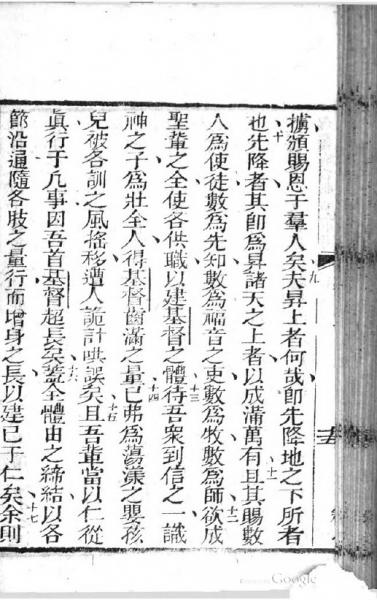 擄頒賜恩于羣人矣夫昇上者何哉卽先降地之下所者
也先降者其卽爲昇諸天之上者以成滿萬有且其賜數
人爲使徒數爲先知數爲福音之吏數爲牧數爲師欲成
聖輩之全使各供職以建基督之體待吾衆到信之一識
神之子爲壯全人得基督齒滿之量已弗爲蕩漾之嬰孩
兒被各訓之風搖移遭人詭計哄誤矣且吾輩當以仁從
眞行于凡事因吾首基督超長矣蓋全體由之締結以各
節沿通隨各肢之量行而增身之長以建已于仁矣余則
九
十
十一
十二
十三
十四
十五
十六
十七
Google